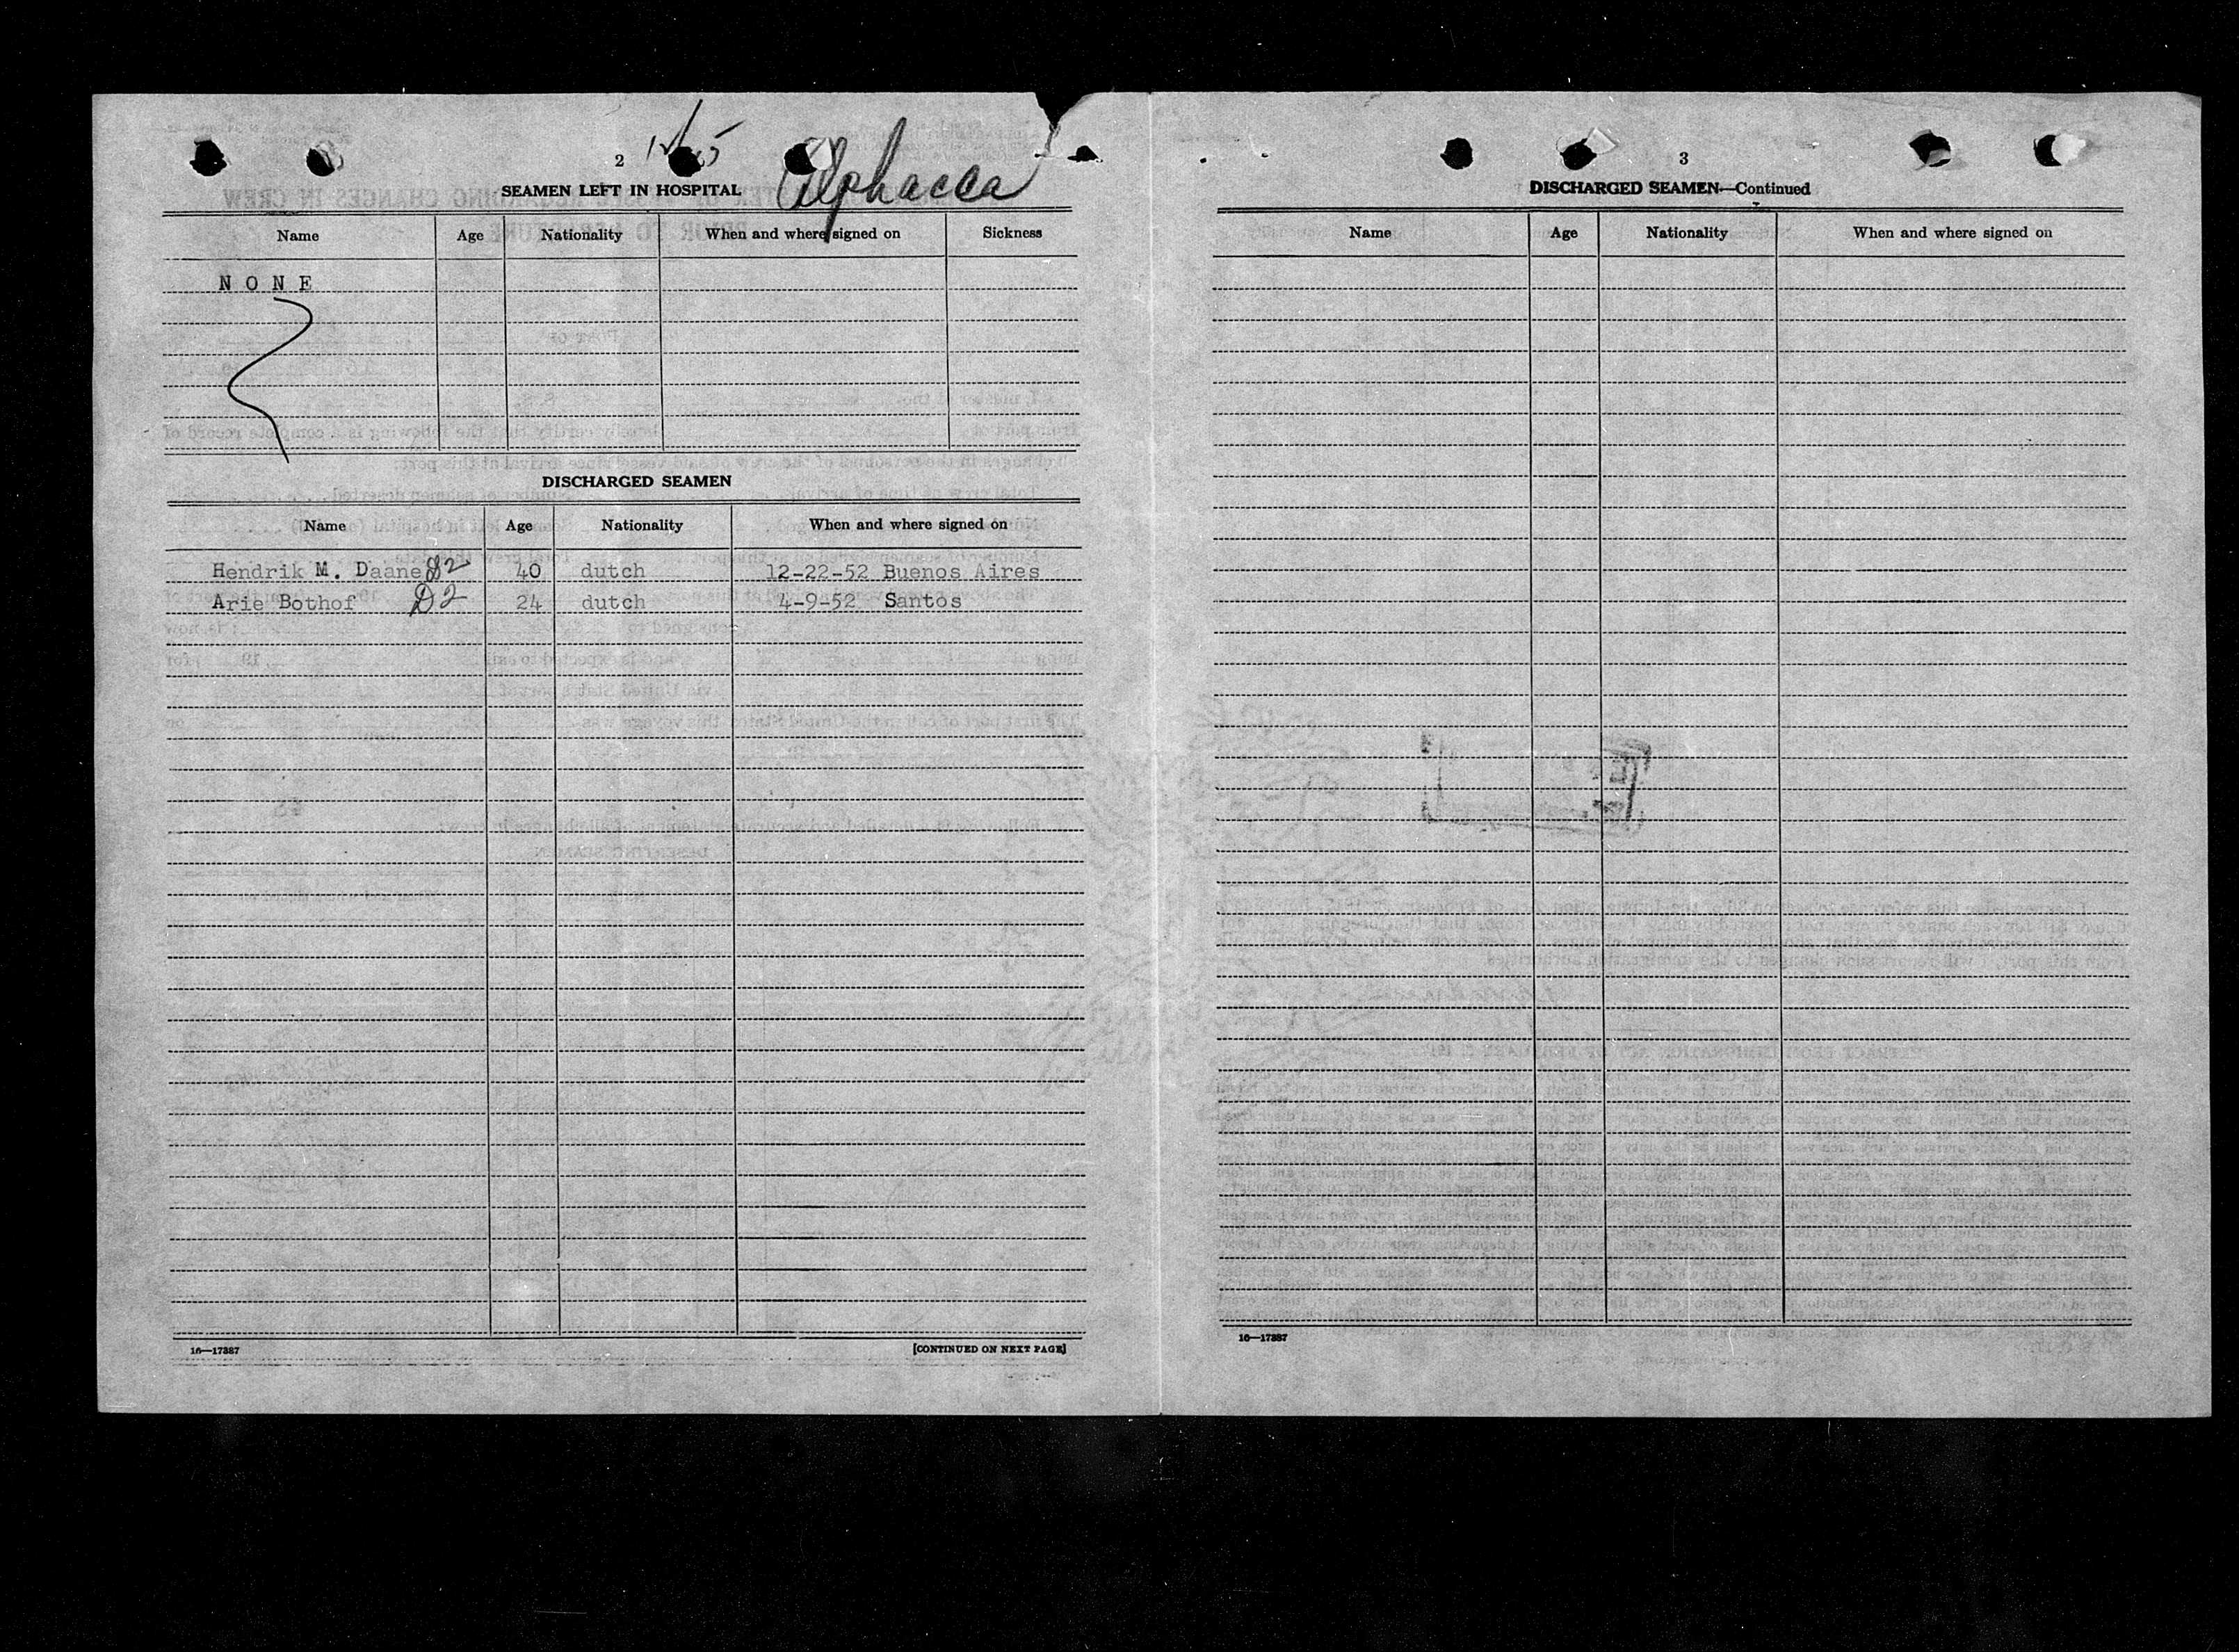 2
Alphacca
SEAMEN LEFT IN HOSPITAL
Name Age Nationality When and where signed on Sickness
N O N E
DISCHARGED SEAMEN
Name Age Nationality When and where signed on
Hendrik M. Daane D2 40 dutch 12-22-52 Buenos Aires
Arie Bothof D2 24 dutch 4-9-52 Santos
16—17387 [CONTINUED ON NEXT PAGE]
3
DISCHARGED SEAMEN—Continued
Name Age Nationality When and where signed on
16—17387